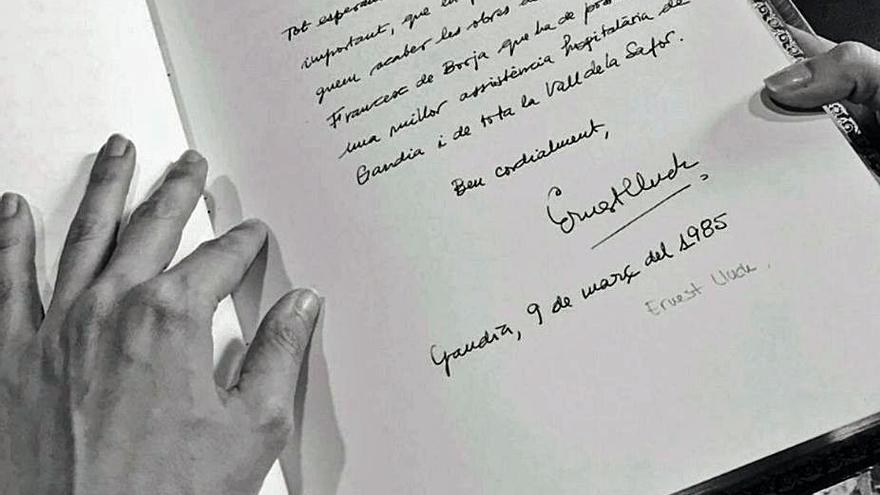 Tot esperant
important, que en
quem acaber les obres de
Francesc de Borja que ha de
una millor assistència hospitalària de
Gandia i de tota la Vall de la Safor.
Ben cordialment,
Ernest Lluch
Gandia, 9 de març del 1985
Ernest Lluch.